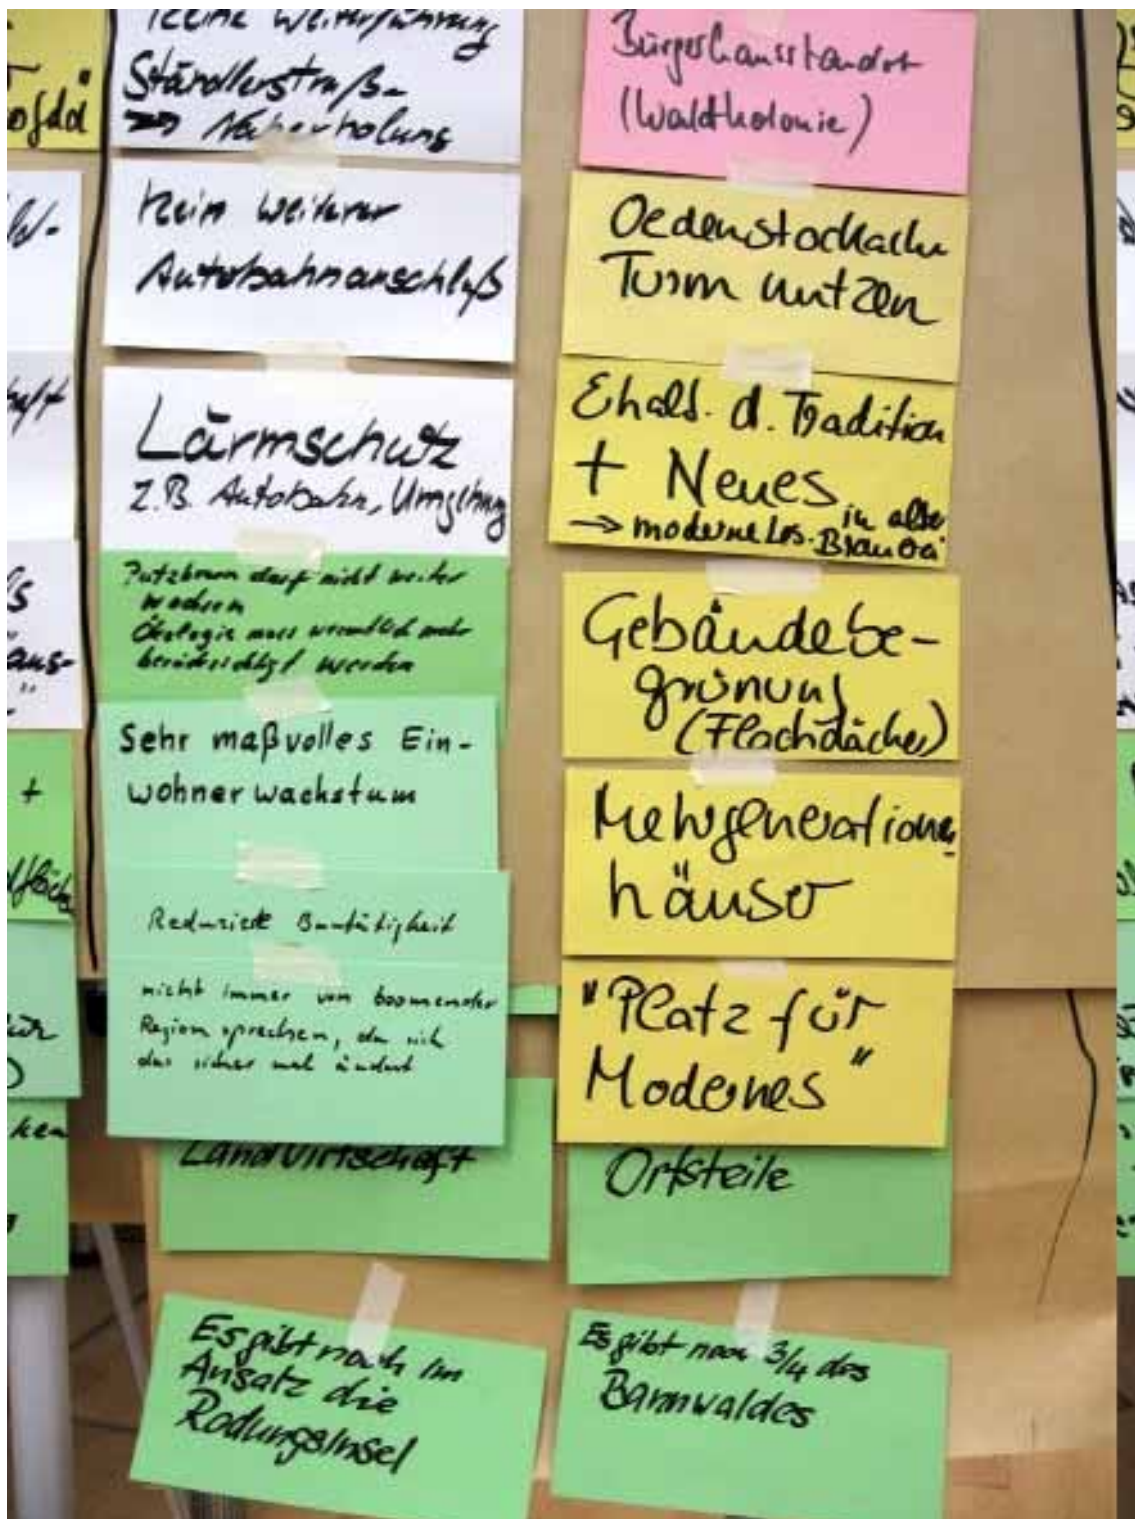 Keine Weiterführung
Ständlerstraße
⇒ Naherholung
Kein weiterer
Autobahnanschluß
Lärmschutz
z.B. Autobahn, Umgehung
Putzbrunn darf nicht weiter
wachsen
Ökologie muss wesentlich mehr
berücksichtigt werden
Sehr maßvolles Ein-
wohnerwachstum
Reduzierte Bautätigkeit
nicht immer von boomender
Region sprechen, da sich
das sicher mal ändert
Landwirtschaft
Es gibt noch im
Ansatz die
Rodungsinsel
Bürgerhausstandort
(Waldkolonie)
Oedenstockacher
Turm nutzen
Erhalt. d. Tradition
+ Neues
→ moderne Lös. in alter
Brauerei
Gebäudebe-
grünung
(Flachdächer)
Mehrgenerationen-
häuser
"Platz für
Modernes"
Ortsteile
Es gibt noch 3/4 des
Bannwaldes